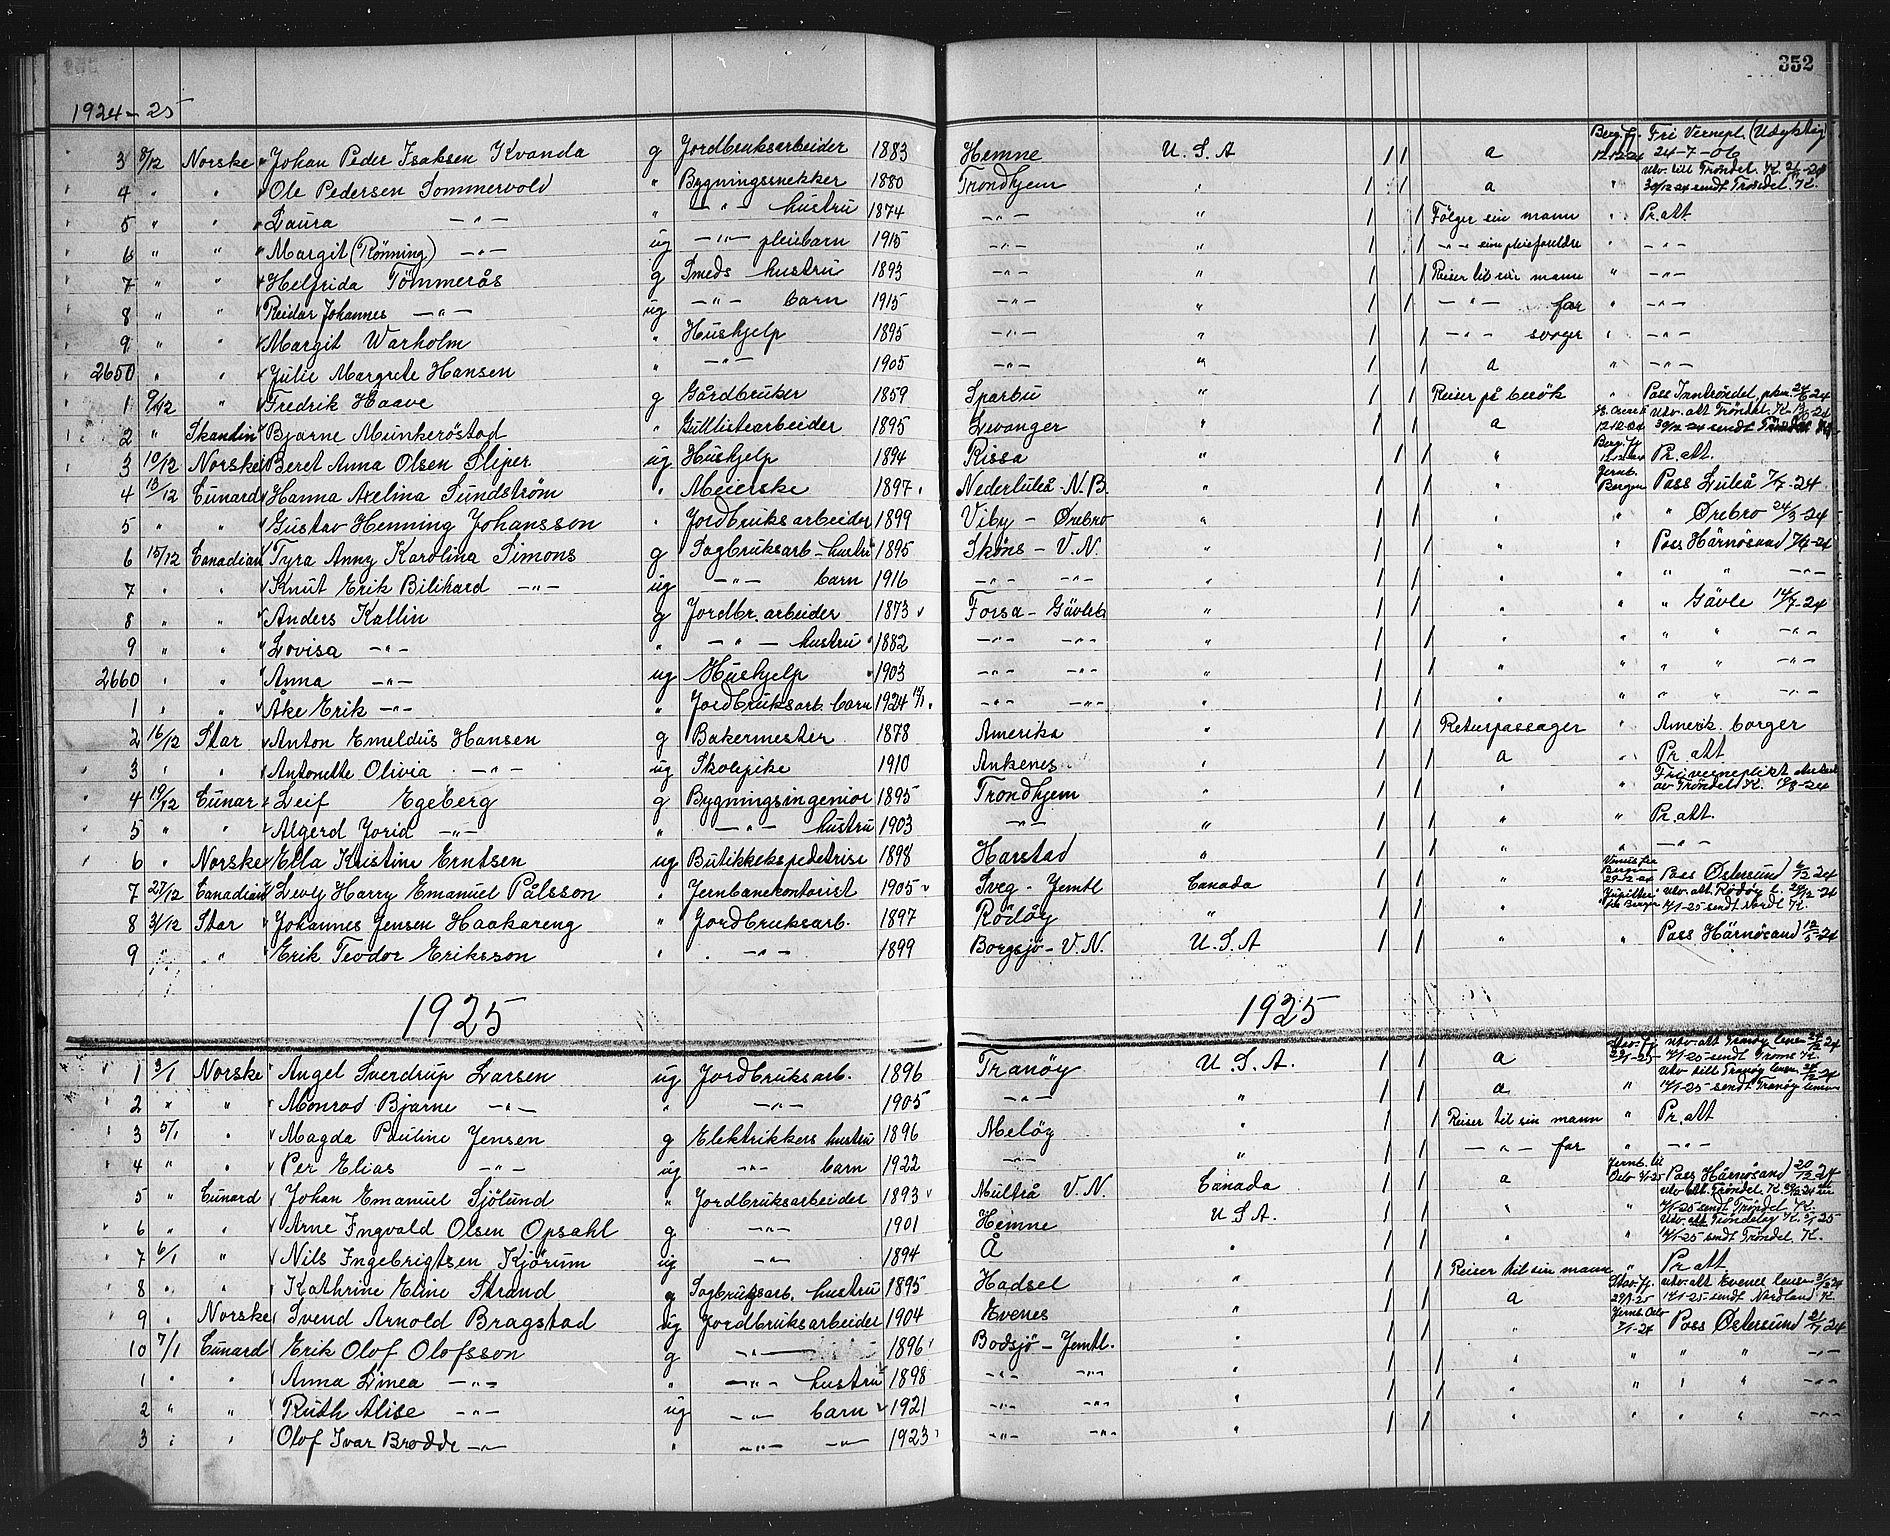 352
1924-25
3 9/12 Norske Johan Peder Isaksen Kvanda g Jordbruksarbeider 1883 Hemne U. S. A 1 1 a Berg.fj. 12/12-24 Fri Vernepl. (Udyktig) 24-7-06
4 " " Ole Pedersen Sommervold " Bygningssnekker 1880 Trondhjem " 1 1 a " utv. till Tröndel. K. 24 30/12 24 sendt Tröndel. K.
5 " " Laura -"- " -"- hustru 1874 -"- " 1 1 Følger sin mann " Pr. att
6 " " Margit (Rönning) -"- ug -"- pleiebarn 1915 -"- " 1 1 -"- sine pleieforeldre " -"-
7 " " Helfrida Tömmerås g Smeds hustru 1893 -"- " 1 1 Reiser til sin mann " -"-
8 " " Reidar Johannes -"- ug -"- barn 1915 -"- " 1 1 -"- far " -"-
9 " " Margit Warholm " Hushjelp 1895 -"- " 1 1 -"- svoger " -"-
2650 " " Julie Margrete Hansen " -"- 1905 -"- " 1 1 a " -"-
1 9/12 " Fredrik Haave g Gårdbruker 1859 Sparbu " 1 1 Reiser på besök " Pass Inntröndel. pkm. 24/ 24
2 " Skandin Bjarne Munkeröstad " Gullistearbeider 1895 Levanger " 1 1 a 12/12-24 utv. att Tröndel. K. 24 30/12 24 sendt Tröndel
3 10/12 Norske Beret Anna Olsen Sliper ug Hushjelp 1894 Rissa " 1 1 " Berg. fj 12/12-24 Pr. att.
4 13/12 Cunard Hanna Axelina Sundström " Meierske 1897 Nederluleå - N.B. " 1 1 " Jernb. Bergen Pass Luleå 7/7-24
5 " " Gustav Henning Johansson " Jordbruksarbeider 1899 Viby - Örebro " 1 1 " " " Örebro 24/3-24
6 15/12 Canadian Tyra Anny Karolina Simons g Sagbruksarb-hustru 1895 Sköns - V.N. " 1 1 " " Pass Härnösand 7/4-24
7 " " Knut Erik Bilikard -"- ug -"- barn 1916 -"- -"- " 1 1 " " " " -"-
8 " " Anders Kallin g Jordbr. arbeider 1873 Forsa - Gävleb. " 1 1 " " " Gävle 14/7-24
9 " " Lovisa -"- " -"- hustru 1882 -"- -"- " 1 1 " " " " -"-
2660 " " Anna -"- ug Hushjelp 1903 -"- -"- " 1 1 " " " " -"-
1 " " Åke Erik -"- " Jordbruksarb. barn 1924 -"- -"- " 1 1 " " " " -"-
2 16/12 Star Anton Emeldus Hansen g Bakermester 1878 Amerika " 1 1 Returpassager " Amerik. borger
3 " " Antonette Olivia -"- ug Skolepike 1910 Ankenes " 1 1 a " Pr. att
4 19/12 Cunar Leif Egeberg g Bygningsingeniør 1895 Trondhjem " 1 1 " " Fri verneplikt av Tröndel. K. 19/8-24
5 " " Algerd Jorid -"- " -"- hustru 1903 -"- " 1 1 " " Pr. att.
6 " Norske Ella Kristine Erntsen ug Butikkekspedetrise 1898 Harstad " 1 1 " " -"-
7 27/12 Canadian Levly Harry Emanuel Pålsson " Jernbanekontorist 1905 Sveg - Jemtl Canada 1 1 " Venus fra Bergen 29-12-24 Pass Östersund 6/12 24
8 31/12 Star Johannes Jensen Haakareng " Jordbruksarb. 1897 Rödöy " 1 1 " fra Bergen utv. att. Rödöy l. 24/12-24 7/1-25 sendt Nordl. K.
9 " " Erik Teodor Eriksson " -"- 1899 Borgsjö - V.N. U. S. A 1 1 " " Pass Härnösand 12/5-24
1925 1925
1 3/1 Norske Angel Sverdrup Larsen ug Jordbruksarb. 1896 Tranöy U. S. A. 1 1 a Stav. fj. 23/1-25 utv. att Tranöy lensm 24/12 24 7/1-25 sendt Troms K.
2 " " Monrad Bjarne -"- " -"- 1905 -"- " 1 1 a " utv till Tranöy lensm 24/12-24 7/1-25 sendt Tranöy lensm
3 5/1 " Magda Pauline Jensen g Elektrikkers hustru 1896 Melöy " 1 1 Reiser til sin mann " Pr. att
4 " " Per Elias -"- ug -"- barn 1922 -"- " 1 1 -"- far " -"-
5 " Cunard Johan Emanuel Sjölund " Jordbruksarbeider 1893 Multrå V.N. Canada 1 1 a Jernb. til Oslo 4/1-25 Pass Härnösand 20/12-24
6 " " Arne Ingvald Olsen Opsahl g -"- 1901 Hemne U S A. 1 1 " " utv. att. Tröndel. K. 24 7/1-25 sendt Tröndel. K.
7 6/1 " Nils Ingebrigtsen Kjörum ug -"- 1894 Å " 1 1 " " Utv. att Tröndelag K. 5/1 25 7/1-25 sendt Tröndel. K.
8 " " Kathrine Eline Strand g Sagbruksarb. hustru 1895 Hadsel " 1 1 Reiser til sin mann " Pr. att
9 " Norske Svend Arnold Bragstad ug Jordbruksarbeider 1904 Evenes " 1 1 a Stav. fj. 29/1-25 utv. att Evenes lensm 24 17/1-25 sendt Nordland K.
10 7/1 Cunard Erik Olof Olofsson g -"- 1896 Bodsjö - Jemtl. " 1 1 " Jernb. Oslo 7/1-24 Pass Östersund 24
1 " " Anna Linea -"- " -"- hustru 1898 -"- -"- " 1 1 " " " " -"-
2 " " Ruth Alise -"- ug -"- barn 1921 -"- -"- " 1 1 " " " " -"-
3 " " Olof Ivar Brodde -"- " -"- -"- 1923 -"- -"- " 1 1 " " " " -"-